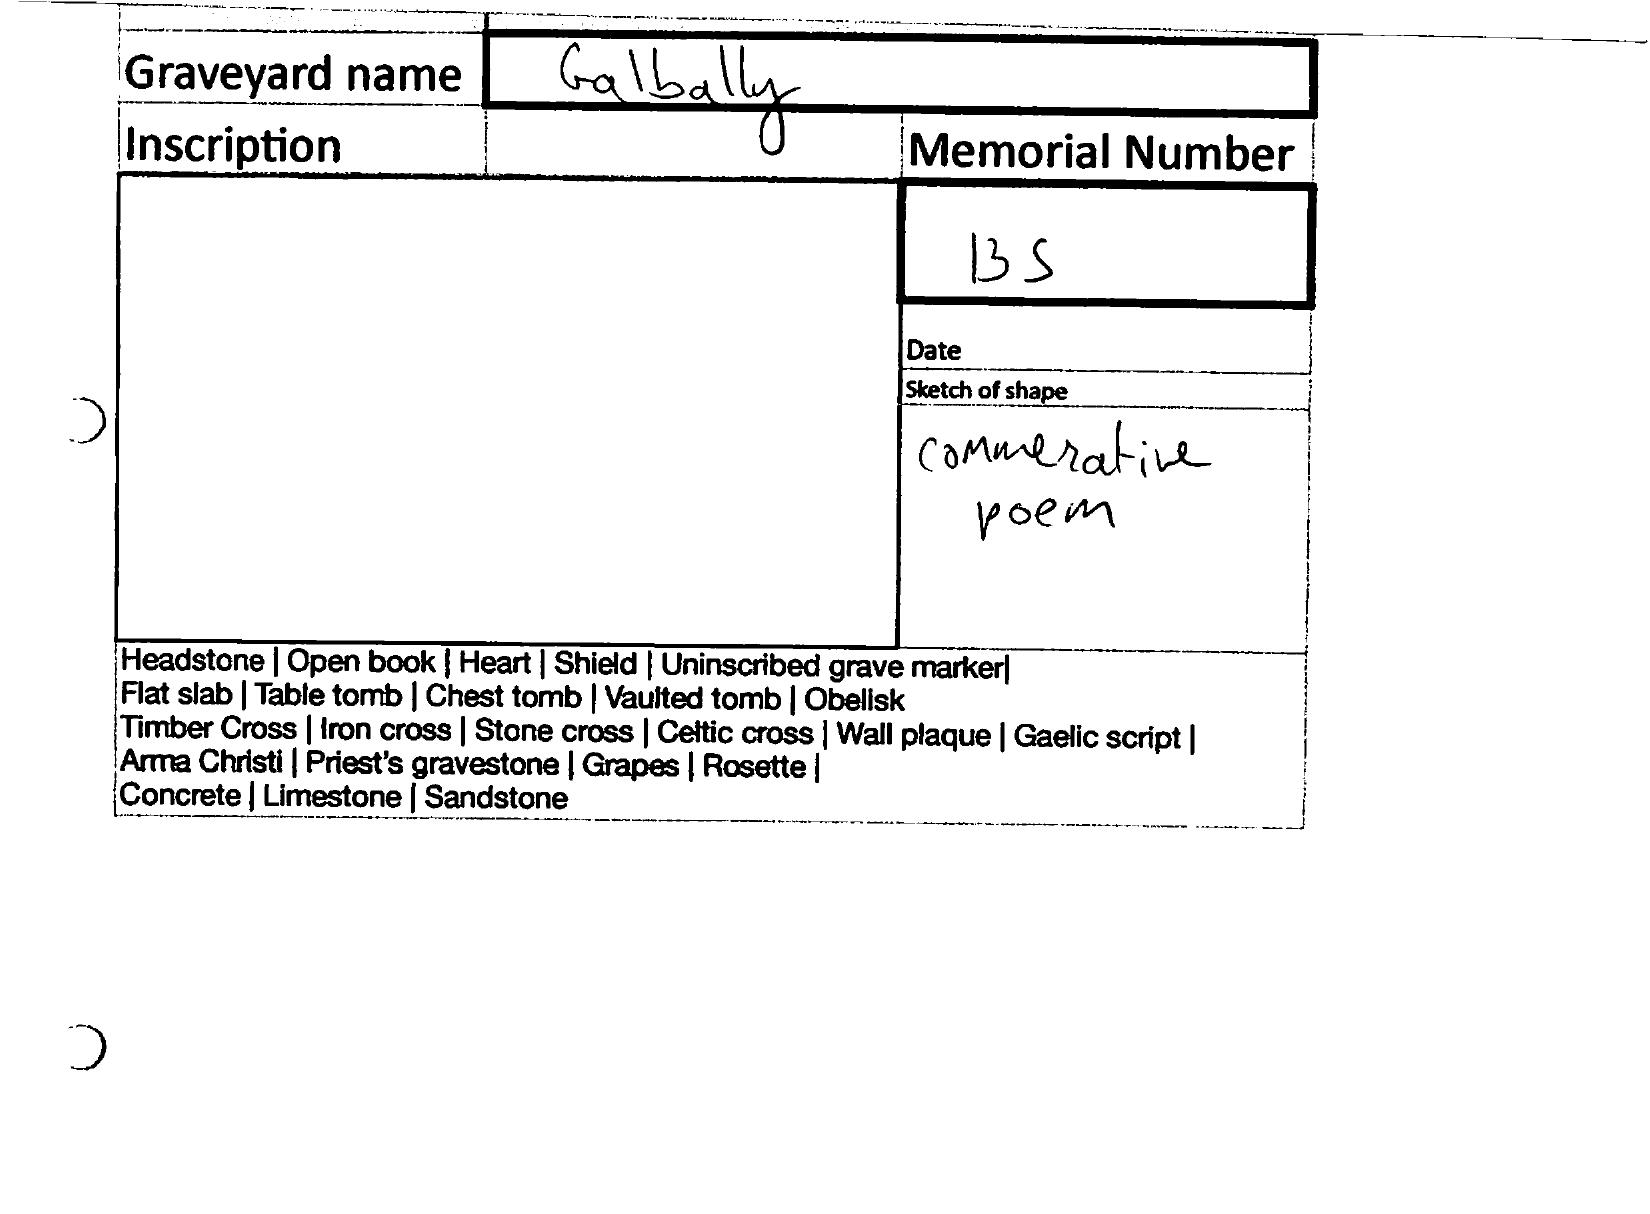 Graveyard name Galbally
Inscription Memorial Number
135
Date
Sketch of shape
commerative
poem
Headstone | Open book | Heart | Shield | Uninscribed grave marker|
Flat slab | Table tomb | Chest tomb | Vaulted tomb | Obelisk
Timber Cross | Iron cross | Stone cross | Celtic cross | Wall plaque | Gaelic script |
Arma Christi | Priest's gravestone | Grapes | Rosette |
Concrete | Limestone | Sandstone